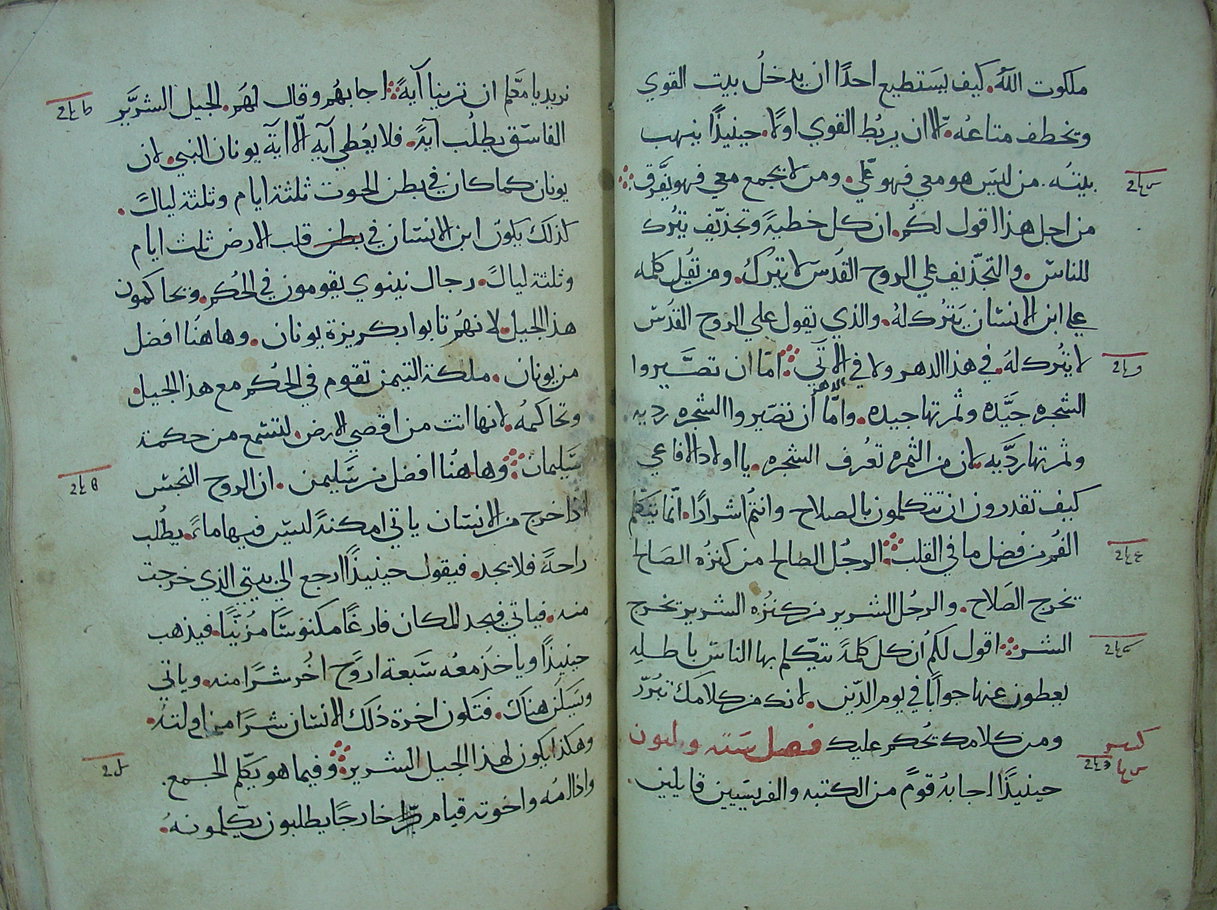 ملكوت الله. كيف يستطيع احدًا ان يدخل بيت القوي
ويخطف متاعه. الا ان يربط القوي اولا. حينيذًا ينهب
بيته. من ليس هو معي فهو علّي. ومن لا يجمع معي فهو يفرق
من اجل هذا اقول لكم. ان كل خطية وتجذيف يترك
للناس. والتجذيف علي الروح القدس لا يترك. ومن يقل كلمه
علي ابن الانسان يترك له. والذي يقول علي الروح القدس
لا يترك له. في هذا الدهر ولا في الاتي امّا ان تصيّروا
الشجره جيّده وثمرتها جيده. وامّا أن تصيروا الشجره رديه
وثمرتها رديّه. لان من الثمره تعرف الشجره. يا اولاد الافاعي
كيف تقدرون ان تتكلمون بالصلاح وانتم اشرارًا. انّما يتكلم
الفم من فضل ما في القلب الرجل الصالح من كنزه الصالح
يخرج الصلاح. والرجل الشرير من كنزه الشرير يخرج
الشر اقول لكم ان كل كلمة يتكلم بها الناس باطله
يعطون عنها جوابًا في يوم الدين. لانك من كلامك تبرّر
ومن كلامك يحكم عليك فصل سته وثلثون
حينيذًا اجابه قومٌ من الكتبه والفريسيين قايلين.
نريد يا معّلم ان ترينا آيةً اجابهم وقال لهم. الجيل الشرّير
الفاسق يطلب آيةً. فلا يعطي آيه الّا اية يونان النبي. لان
يونان كما كان في بطن الحوت ثلثة ايام وثلثة ليالٍ.
كذلك يكون ابن الانسان في بطن قلب الارض ثلث ايام
وثلثة ليالٍ. رجال نينوي يقومون في الحكم. ويحاكمون
هذا الجيل. لانهم تابوا بكريزة يونان. وهاهنا افضل
من يونان. ملكة التيمن تقوم في الحكم مع هذا الجيل.
وتحاكمه. لانها اتت من اقصي الارض. لتسمع من حكمة
سليمان وهاهنا افضل من سليمن. ان الروح النجس
اذا خرج من الانسان ياتي امكنةً ليس فيها ماءً. يطلب
راحةً فلا يجد. فيقول حينيذًا ارجع الي بيتي الذي خرجت
منه. فياتي فيجد المكان فارغًا مكنوسًا مزيّنًا. فيذهب
حينيذًا وياخذ معه سبعة ارواح اخر شرًا منه. وياتي
ويسكن هناك. فتكون اخرة ذلك الانسان شرًا من اولته.
وهكذا يكون لهذا الجيل الشرير وفيما هو يكلم الجمع.
واذا امه واخوته قيام خارجًا يطلبون يكلمونه.